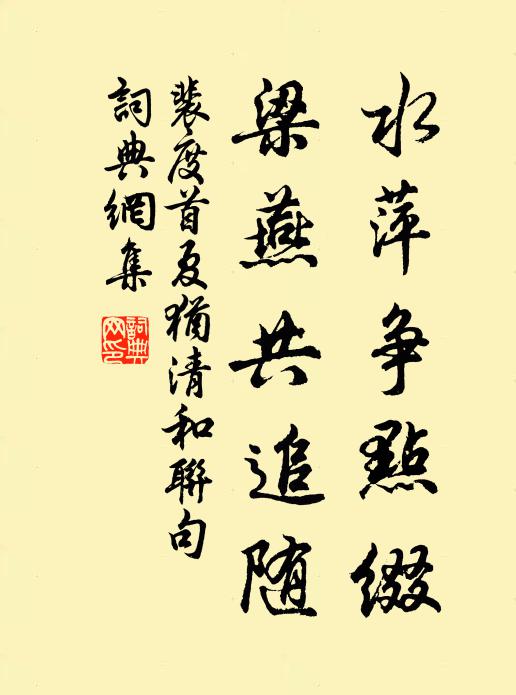 水萍争點綴
梁燕共追随
裴度首夏猶清和聯句
詞典網集
詞典
网印